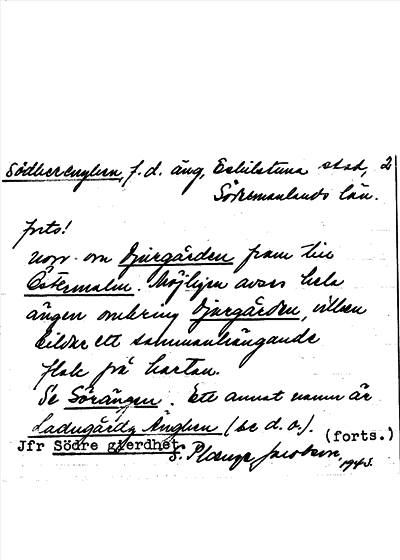 Södherenghen, f. d. äng, Eskilstuna stad, 2
Södermanlands län.
forts!
upp om Djurgården fram till
Östermalm. Möjligen avses hela
ängen omkring Djurgården, vilken
bildar ett sammanhängande
flak på kartan.
Se Sörängen. Ett annat namn är
Ladugårdz Änghen (se d. o.).
(forts.)
Jfr Södre gierdhet
S. Jacobson, 1943.